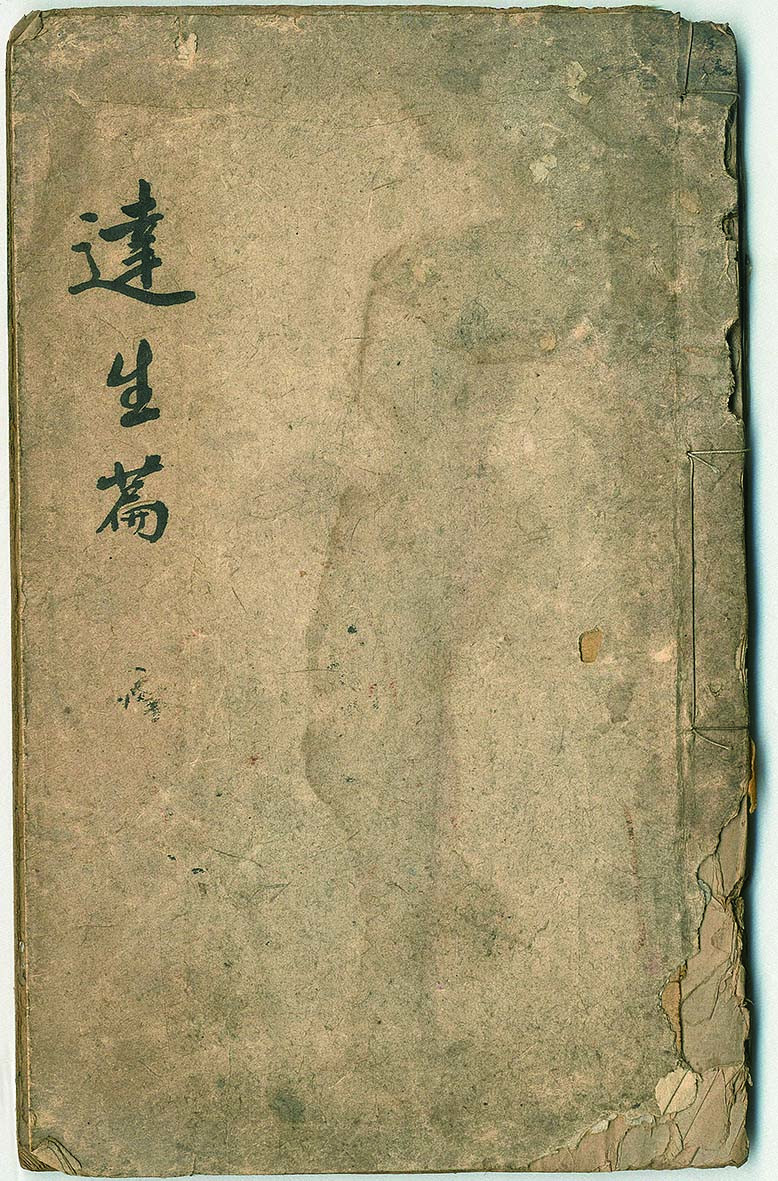 達生篇